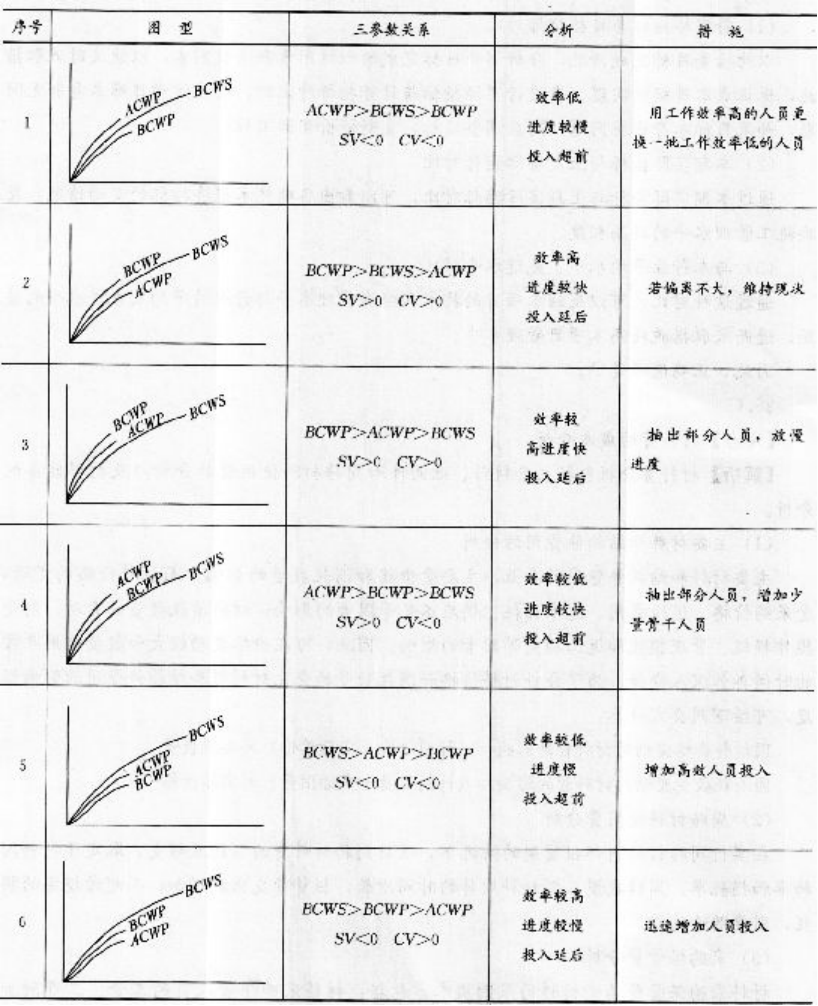 序号 图 型 三参数关系 分析 措 施
1
ACWP
BCWS
BCWP
ACWP>BCWS>BCWP
SV<0 CV<0
效率低
进度较慢
投入超前
用工作效率高的人员更
换一批工作效率低的人员
2
BCWP
BCWS
ACWP
BCWP>BCWS>ACWP
SV>0 CV>0
效率高
进度较快
投入延后
若偏离不大，维持现状
3
BCWP
ACWP
BCWS
BCWP>ACWP>BCWS
SV>0 CV>0
效率较
高进度快
投入延后
抽出部分人员，放慢
进度
4
ACWP
BCWP
BCWS
ACWP>BCWP>BCWS
SV>0 CV<0
效率较低
进度较快
投入超前
抽出部分人员，增加少
量骨干人员
5
BCWS
ACWP
BCWP
BCWS>ACWP>BCWP
SV<0 CV<0
效率较低
进度慢
投入超前
增加高效人员投入
6
BCWS
BCWP
ACWP
BCWS>BCWP>ACWP
SV<0 CV>0
效率较高
进度较慢
投入延后
迅速增加人员投入